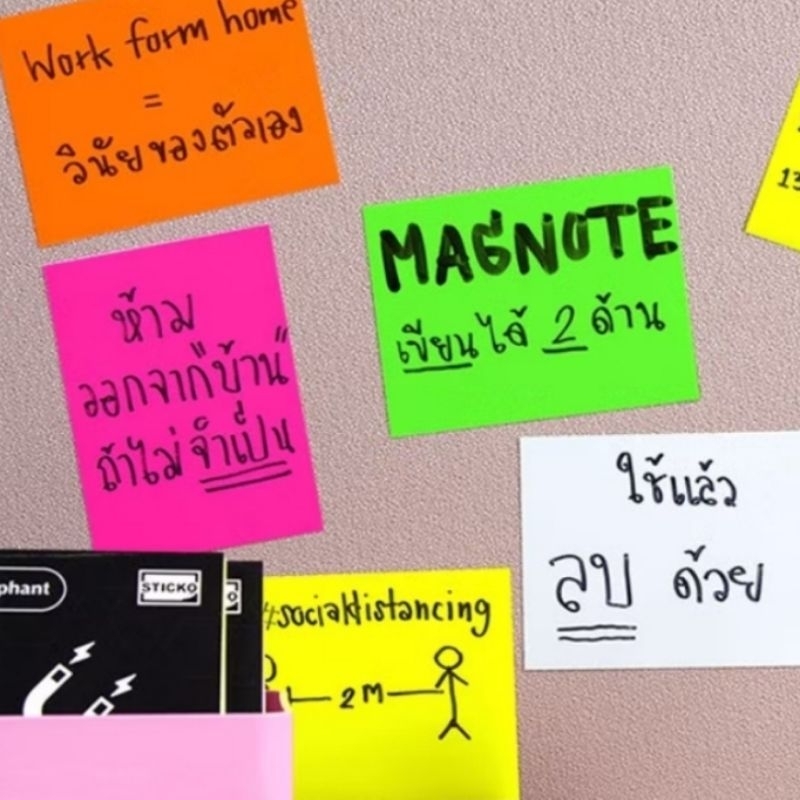 Work form home
=
วินัยของตัวเอง
ห้าม
ออกจาก"บ้าน"
ถ้าไม่จำเป็น
MAGNOTE
เขียนได้ 2 ด้าน
13
ใช้แล้ว
ลบ ด้วย
phant
STICKO
#socialdistancing
2M